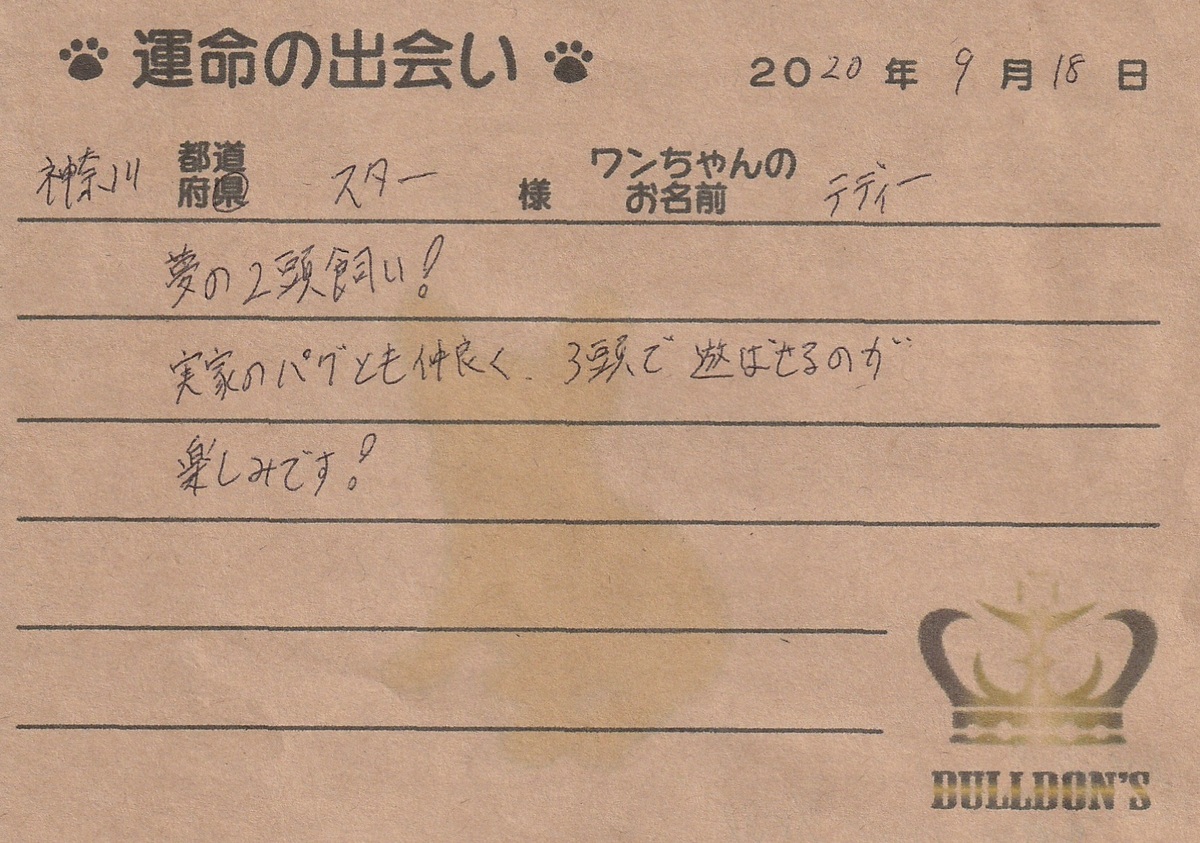 運命の出会い 2020年 9月 18日
神奈川 都道府県 スター 様 ワンちゃんのお名前 テディー
夢の2頭飼い!
実家のパグとも仲良く、3頭で遊ばせるのが
楽しみです!
BULLDON'S